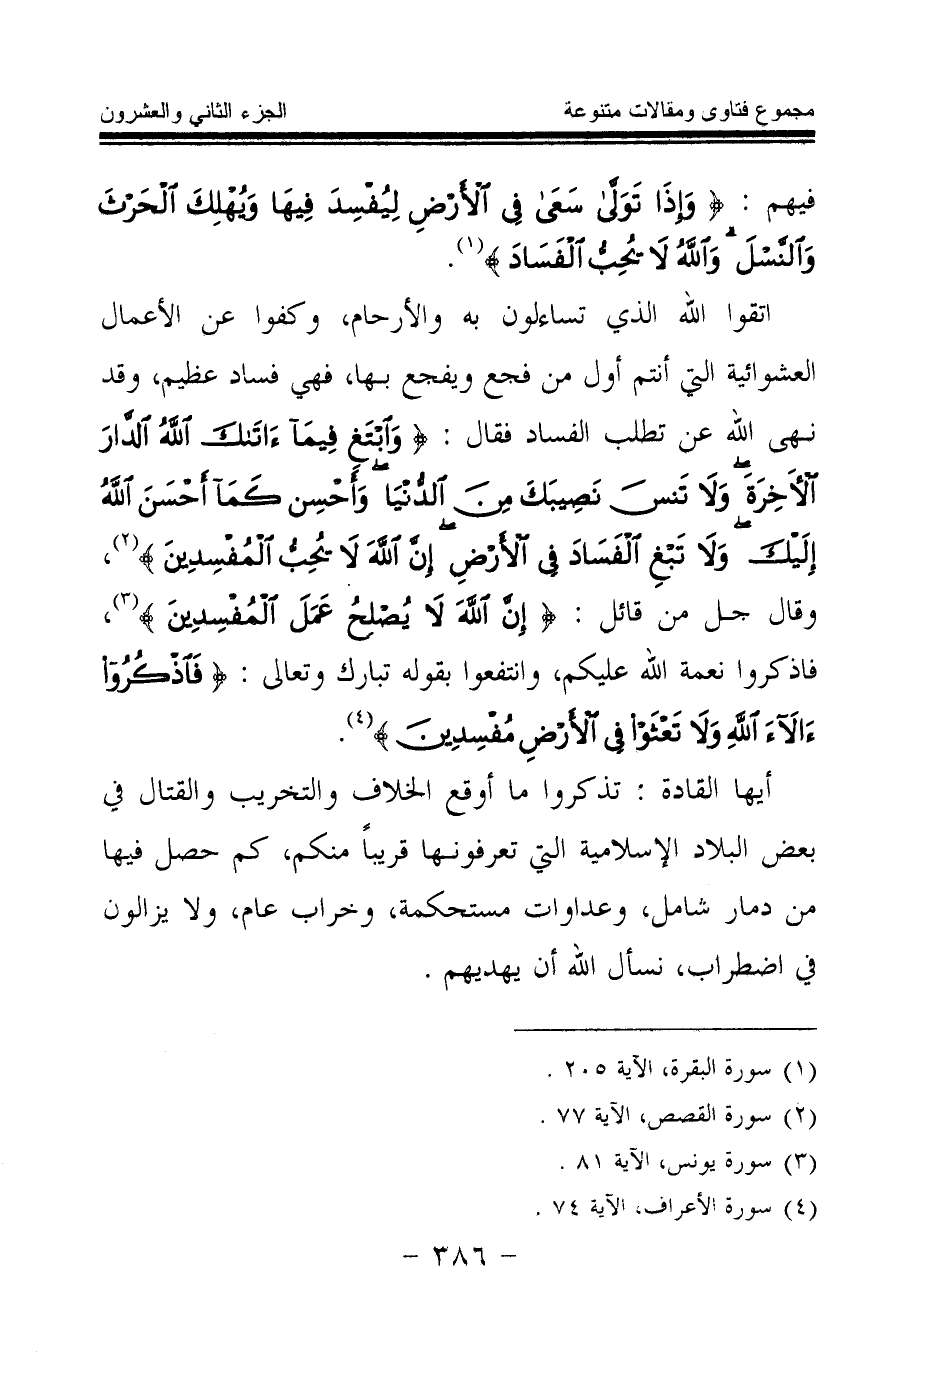 مجموع فتاوى ومقالات متنوعة الجزء الثاني والعشرون
فيهم : ﴿ وَإِذَا تَوَلَّىٰ سَعَىٰ فِي ٱلْأَرْضِ لِيُفْسِدَ فِيهَا وَيُهْلِكَ ٱلْحَرْثَ
وَٱلنَّسْلَ ۗ وَٱللَّهُ لَا يُحِبُّ ٱلْفَسَادَ ﴾(١).
اتقوا الله الذي تساءلون به والأرحام، وكفوا عن الأعمال
العشوائية التي أنتم أول من فجع ويفجع بها، فهي فساد عظيم، وقد
نهى الله عن تطلب الفساد فقال : ﴿ وَٱبْتَغِ فِيمَآ ءَاتَىٰكَ ٱللَّهُ ٱلدَّارَ
ٱلْأَخِرَةَ ۖ وَلَا تَنسَ نَصِيبَكَ مِنَ ٱلدُّنْيَا ۖ وَأَحْسِن كَمَآ أَحْسَنَ ٱللَّهُ
إِلَيْكَ ۖ وَلَا تَبْغِ ٱلْفَسَادَ فِي ٱلْأَرْضِ ۖ إِنَّ ٱللَّهَ لَا يُحِبُّ ٱلْمُفْسِدِينَ ﴾(٢)،
وقال جل من قائل : ﴿ إِنَّ ٱللَّهَ لَا يُصْلِحُ عَمَلَ ٱلْمُفْسِدِينَ ﴾(٣)،
فاذكروا نعمة الله عليكم، وانتفعوا بقوله تبارك وتعالى : ﴿ فَٱذْكُرُوٓا۟
ءَالَآءَ ٱللَّهِ وَلَا تَعْثَوْا۟ فِي ٱلْأَرْضِ مُفْسِدِينَ ﴾(٤).
أيها القادة : تذكروا ما أوقع الخلاف والتخريب والقتال في
بعض البلاد الإسلامية التي تعرفونها قريباً منكم، كم حصل فيها
من دمار شامل، وعداوات مستحكمة، وخراب عام، ولا يزالون
في اضطراب، نسأل الله أن يهديهم .
(١) سورة البقرة، الآية ٢٠٥ .
(٢) سورة القصص، الآية ٧٧ .
(٣) سورة يونس، الآية ٨١ .
(٤) سورة الأعراف، الآية ٧٤ .
- ٣٨٦ -